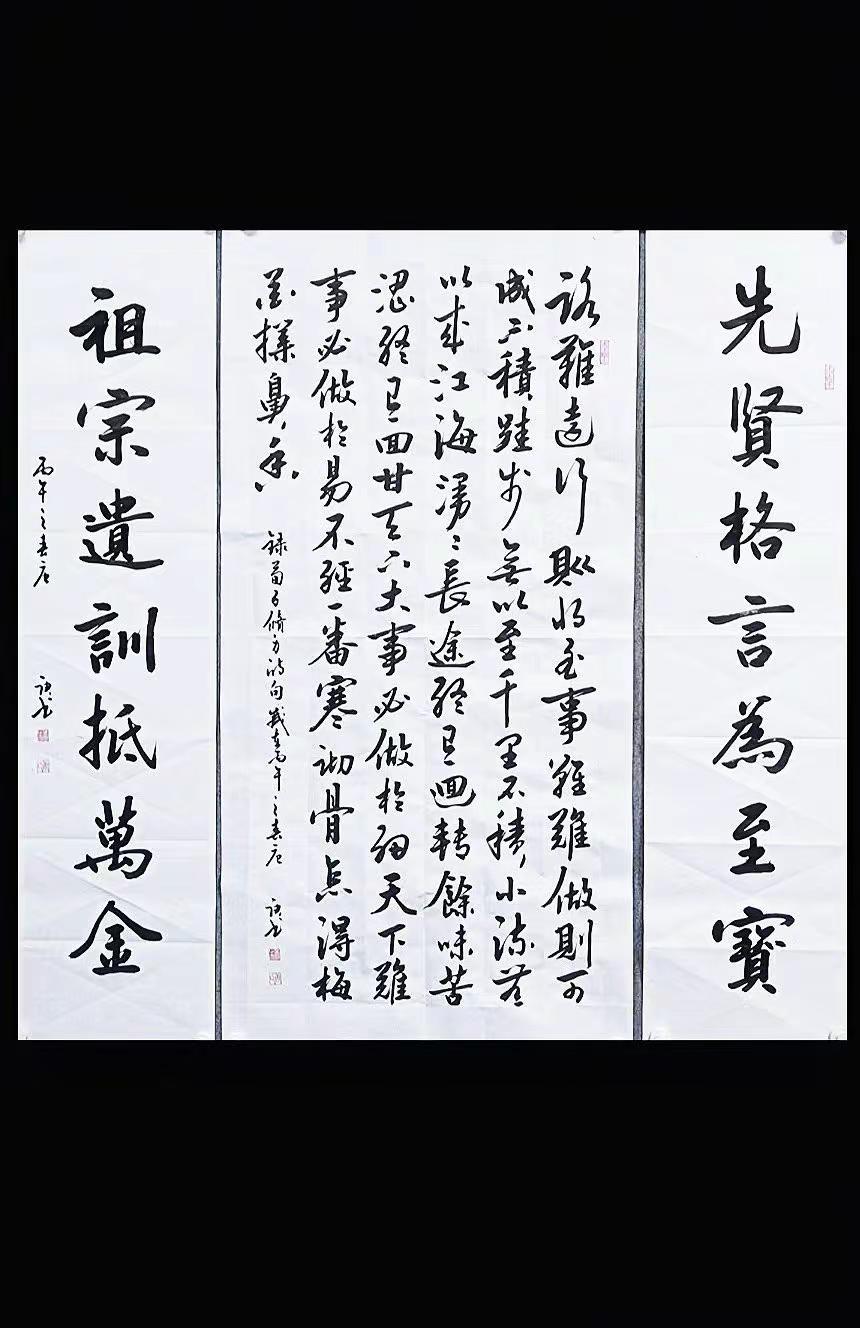 先賢格言為至寶
路難遠行則將至事雖難做則可
成不積跬步無以至千里不積小流無
以成江海漫〻長途終有迴轉餘味苦
澀終有回甘天下大事必做於細天下難
事必做於易不經一番寒徹骨怎得梅
花撲鼻香
錄荀子脩身的句 歲在丙午之春 
祖宗遺訓抵萬金
丙午之春